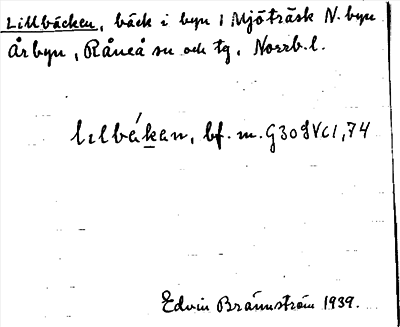 Lillbäcken, bäck i byn Mjöträsk N. byn
Årbyn, Råneå sn och tg, Norrb. l.
lılbäkan, bf. m. G309VC1,74
Edvin Brännström 1939.